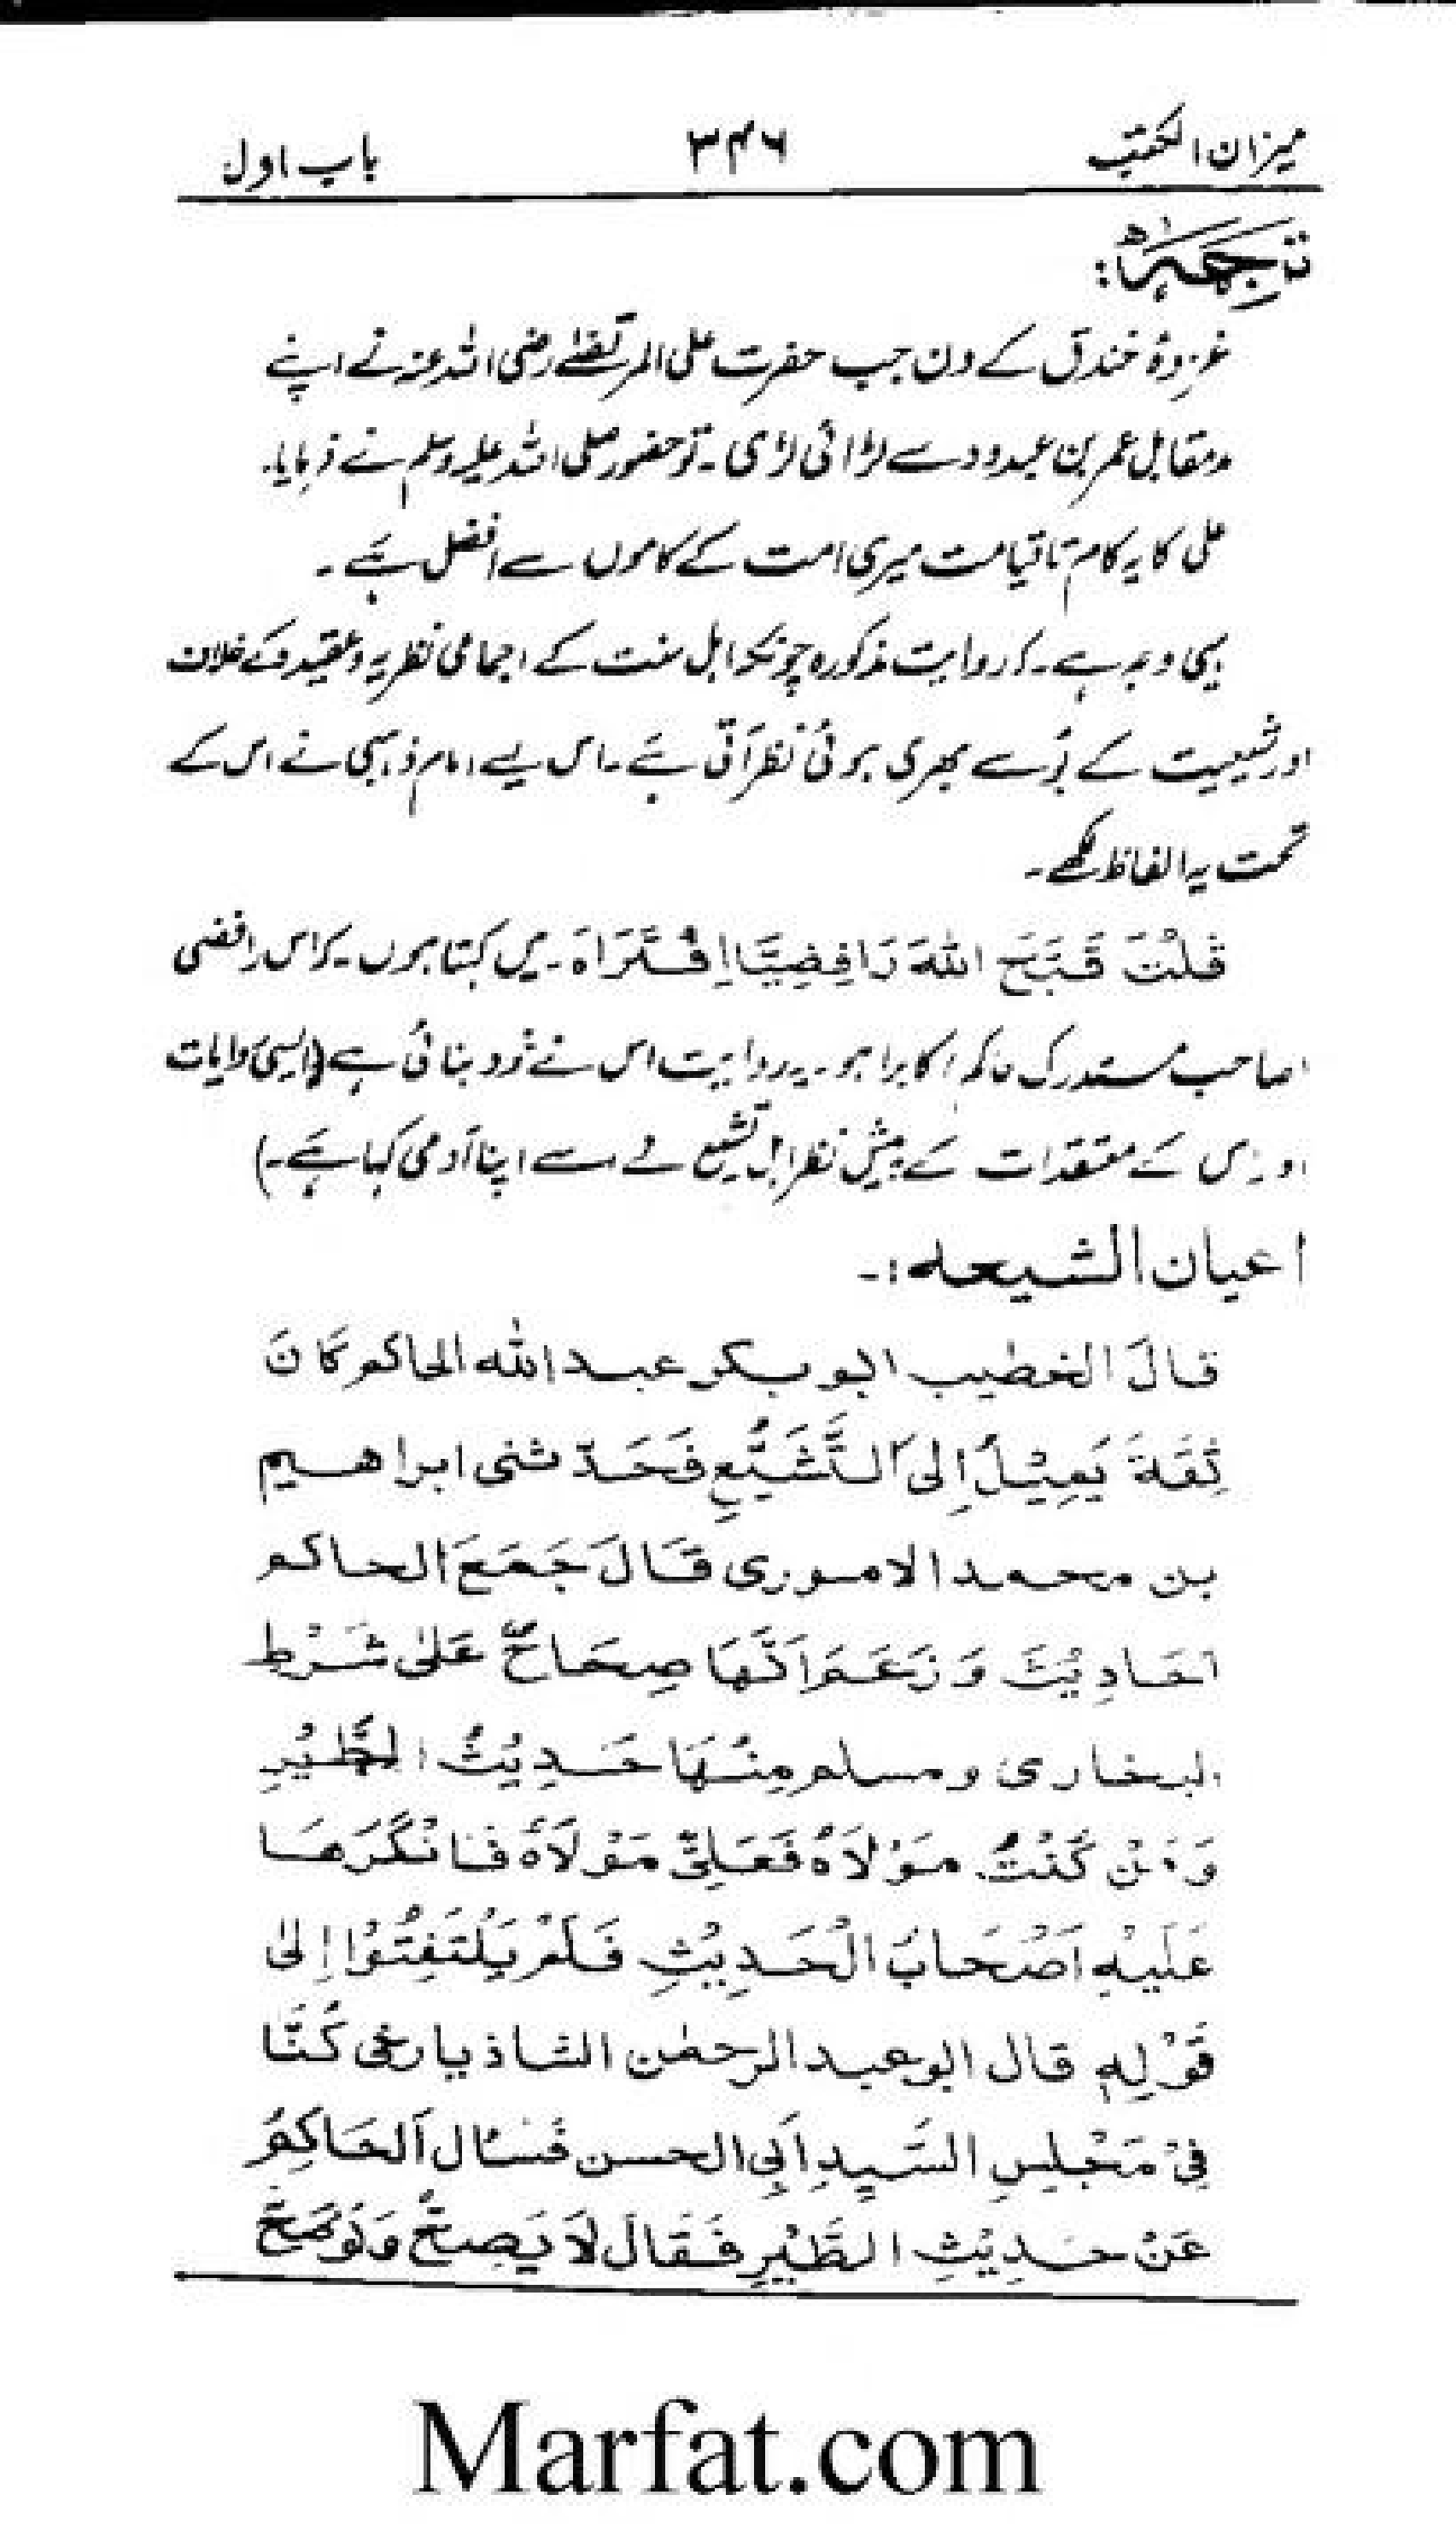 میزان الکتب ۳۴۶ باب اول
ترجمہ:
غزوۂ خندق کے دن جب حضرت علی المرتضےٰ رضی اللہ عنہ نے اپنے
مدمقابل عمر بن عبدود سے لڑائی لڑی۔ تو حضور صلی اللہ علیہ وسلم نے فرمایا۔
علی کا یہ کام تا قیامت میری امت کے کاموں سے افضل ہے۔
یہی وجہ ہے۔ کہ روایت مذکورہ چونکہ اہل سنت کے اجماعی نظریہ و عقیدہ کے خلاف
اور شیعیت کے بُو سے بھری ہوئی نظر آتی ہے۔ اس لیے امام ذہبی نے اس کے
تحت یہ الفاظ لکھے۔
قُلْتُ قَبَّحَ اللهُ رَافِضِيًّا اِفْتَرَاهُ۔ میں کہتا ہوں۔ کہ اس رافضی
(صاحب مستدرک حاکم) کا برا ہو۔ یہ روایت اس نے خود بنائی ہے (ایسی روایات
اور اسی کے معتقدات کے پیش نظر اہل تشیع نے اسے اپنا آدمی کہا ہے۔)
اعیان الشیعہ:۔
قالَ الخطيب ابو بكر عبد الله الحاكم كَانَ
ثِقَةً يَمِيْلُ اِلَى التَّشَيُّعِ فَحَدّثنى ابراهيم
بن محمد الاموری قَالَ جَمَعَ الحاكم
اَحَادِيْثَ وَ زَعَمَ اَنَّهَا صِحَاحٌ عَلىٰ شَرْطِ
البخاری ومسلم مِنْهَا حَدِيْثُ الطَّيْرِ
وَ مَنْ كُنْتُ مَوْلَاهُ فَعَلِىٌّ مَوْلَاهُ فَانْكَرَهَا
عَلَيْهِ اَصْحَابُ الْحَدِيْثِ فَلَمْ يَلْتَفِتُوْا اِلىٰ
قَوْلِهٖ قال ابو عبد الرحمٰن الشاذياخى كُنَّا
فِىْ مَجْلِسِ السَّيِّدِ اَبِى الحسن فَسُئال الحَاكِمُ
عَنْ حَدِيْثِ الطَّيْرِ فَقَالَ لَا يَصِحُّ وَلَوْ صَحَّ
Marfat.com